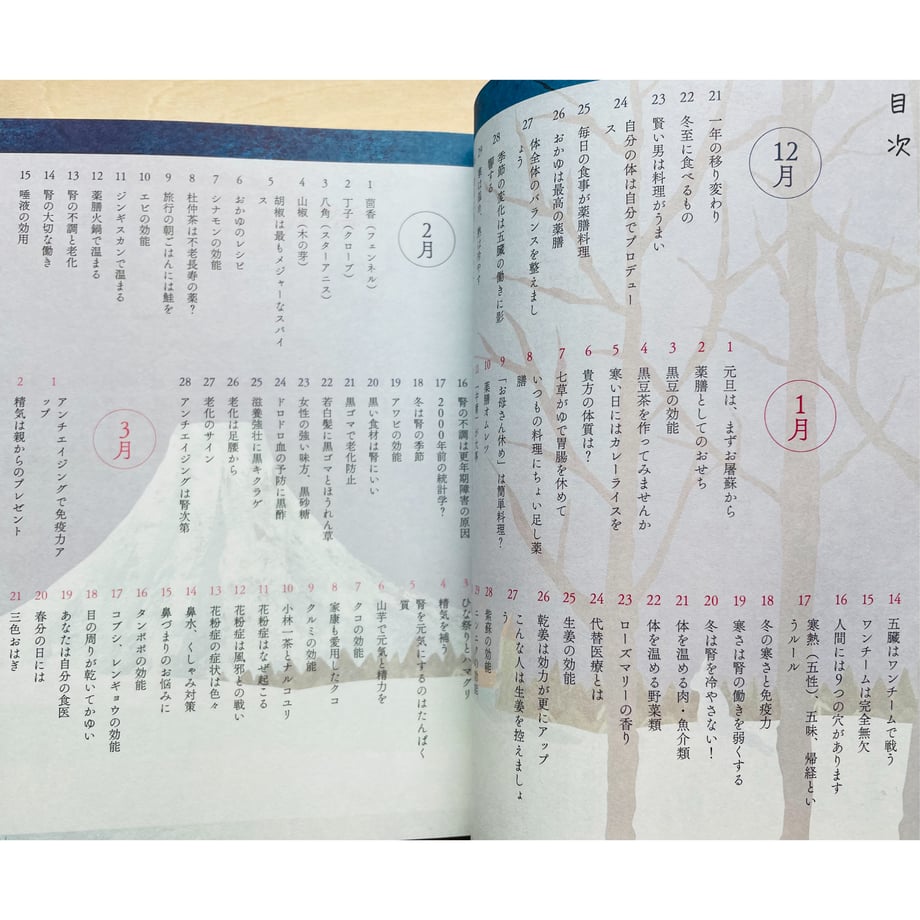 目次
12月
21 一年の移り変わり
22 冬至に食べるもの
23 賢い男は料理がうまい
24 自分の体は自分でプロデュー
ス
25 毎日の食事が薬膳料理
26 おかゆは最高の薬膳
27 体全体のバランスを整えまし
ょう
28 季節の変化は五臓の働きに影
響する
29
1月
1 元旦は、まずお屠蘇から
2 薬膳としてのおせち
3 黒豆の効能
4 黒豆茶を作ってみませんか
5 寒い日にはカレーライスを
6 貴方の体質は?
7 七草がゆで胃腸を休めて
8 いつもの料理にちょい足し薬
膳
9 「お母さん休め」は簡単料理?
10 薬膳オムレツ
11
14 五臓はワンチームで戦う
15 ワンチームは完全無欠
16 人間には9つの穴があります
17 寒熱(五性)、五味、帰経とい
うルール
18 冬の寒さと免疫力
19 寒さは腎の働きを弱くする
20 冬は腎を冷やさない!
21 体を温める肉・魚介類
22 体を温める野菜類
23 ローズマリーの香り
24 代替医療とは
25 生姜の効能
26 乾姜は効力が更にアップ
27 こんな人は生姜を控えましょ
う
28 紫蘇の効能
29
2月
1 茴香(フェンネル)
2 丁子(クローブ)
3 八角(スターアニス)
4 山椒(木の芽)
5 胡椒は最もメジャーなスパイ
ス
6 おかゆのレシピ
7 シナモンの効能
8 杜仲茶は不老長寿の薬?
9 旅行の朝ごはんには鮭を
10 エビの効能
11 ジンギスカンで温まる
12 薬膳火鍋で温まる
13 腎の不調と老化
14 腎の大切な働き
15 唾液の効用
16 腎の不調は更年期障害の原因
17 2000年前の統計学?
18 冬は腎の季節
19 アワビの効能
20 黒い食材は腎にいい
21 黒ゴマで老化防止
22 若白髪に黒ゴマとほうれん草
23 女性の強い味方、黒砂糖
24 ドロドロ血の予防に黒酢
25 滋養強壮に黒キクラゲ
26 老化は足腰から
27 老化のサイン
28 アンチエイジングは腎次第
3月
1 アンチエイジングで免疫力ア
ップ
2 精気は親からのプレゼント
3 ひな祭りとハマグリ
4 精気を補う
5 腎を元気にするのはたんぱく
質
6 山芋で元気と精力を
7 クコの効能
8 家康も愛用したクコ
9 クルミの効能
10 小林一茶とナルコユリ
11 花粉症はなぜ起こる
12 花粉症は風邪との戦い
13 花粉症の症状は色々
14 鼻水、くしゃみ対策
15 鼻づまりのお悩みに
16 タンポポの効能
17 コブシ、レンギョウの効能
18 目の周りが乾いてかゆい
19 あなたは自分の食医
20 春分の日には
21 三色おはぎ